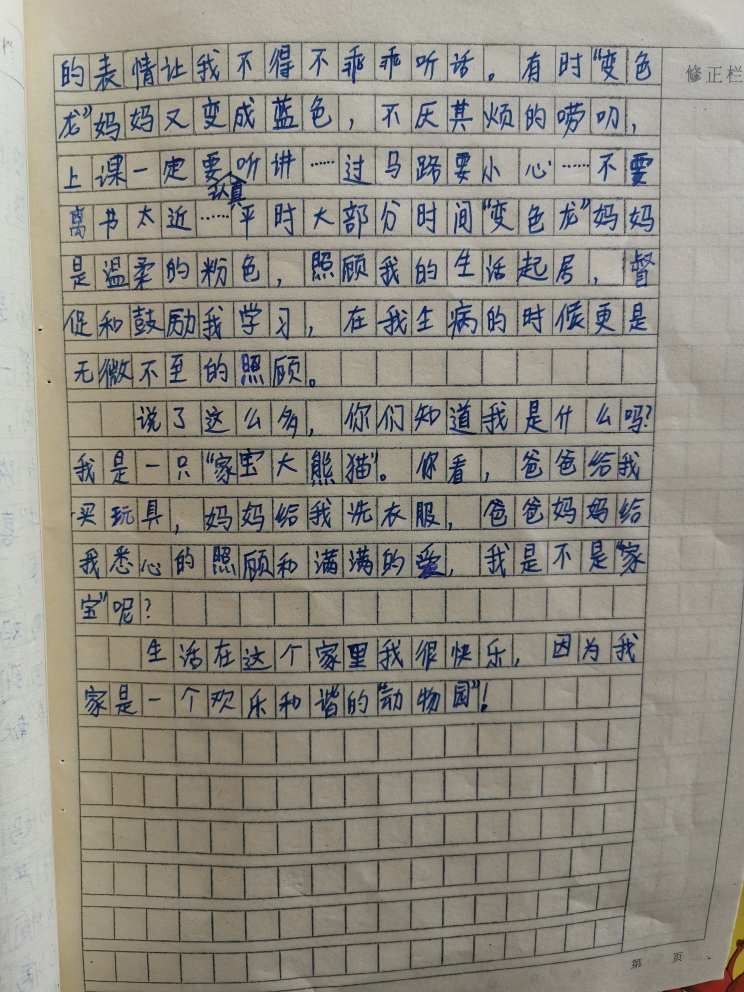 的表情让我不得不乖乖听话。有时“变色
修正栏
龙”妈妈又变成蓝色，不厌其烦的唠叨，
上课一定要认真听讲……过马路要小心……不要
离书太近……平时大部分时间“变色龙”妈妈
是温柔的粉色，照顾我的生活起居，督
促和鼓励我学习，在我生病的时候更是
无微不至的照顾。
说了这么多，你们知道我是什么吗？
我是一只“家宝大熊猫”。你看，爸爸给我
买玩具，妈妈给我洗衣服，爸爸妈妈给
我悉心的照顾和满满的爱，我是不是“家
宝”呢？
生活在这个家里我很快乐，因为我
家是一个欢乐和谐的“动物园”！
第 页